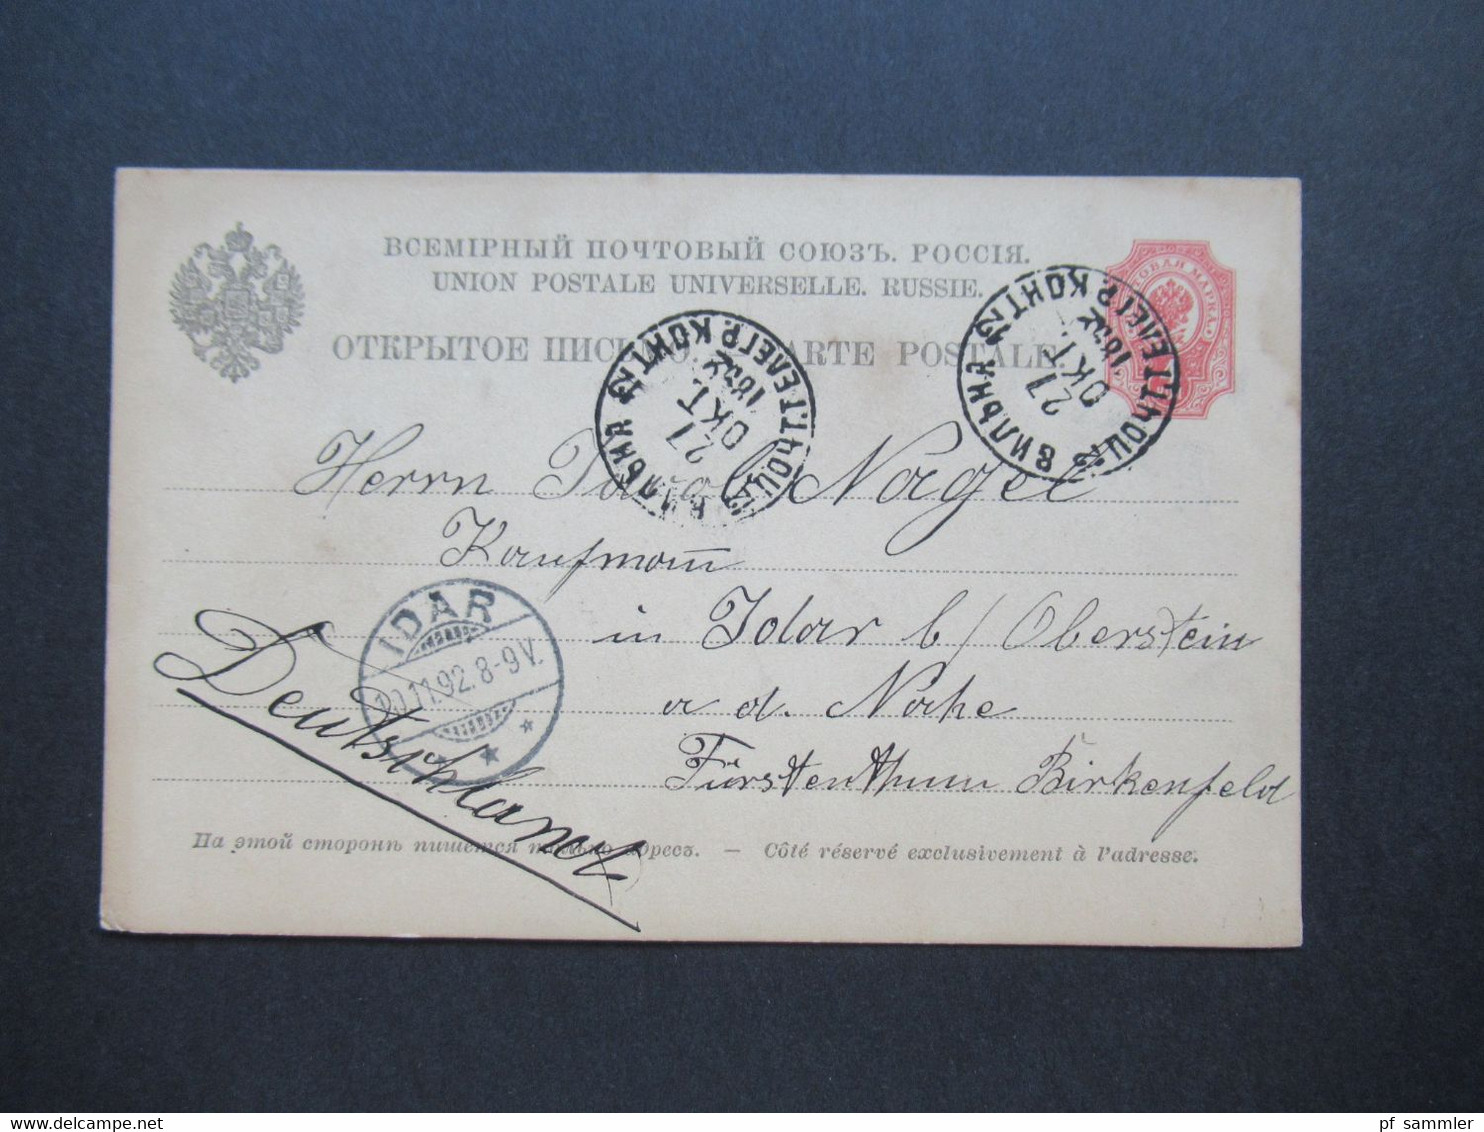 ВСЕМІРНЫЙ ПОЧТОВЫЙ СОЮЗЪ. РОССІЯ.
UNION POSTALE UNIVERSELLE. RUSSIE.
ОТКРЫТОЕ ПИСЬМО. CARTE POSTALE.
МАРКА
ВИЛЬНА ПОЧТ. ТЕЛЕГР. КОНТ.
27
ОКТ.
1892
ВИЛЬНА ПОЧТ. ТЕЛЕГР. КОНТ.
27
ОКТ.
1892
Herrn Jacob Nagel
Kaufmann̅
in Idar b/ Oberstein
a d. Nahe
Fürstenthum Birkenfeld
Deutschland
IDAR
10.11.92.8-9V.
На этой сторонѣ пишется только адресъ. — Côté réservé exclusivement à l'adresse.
pf sammler